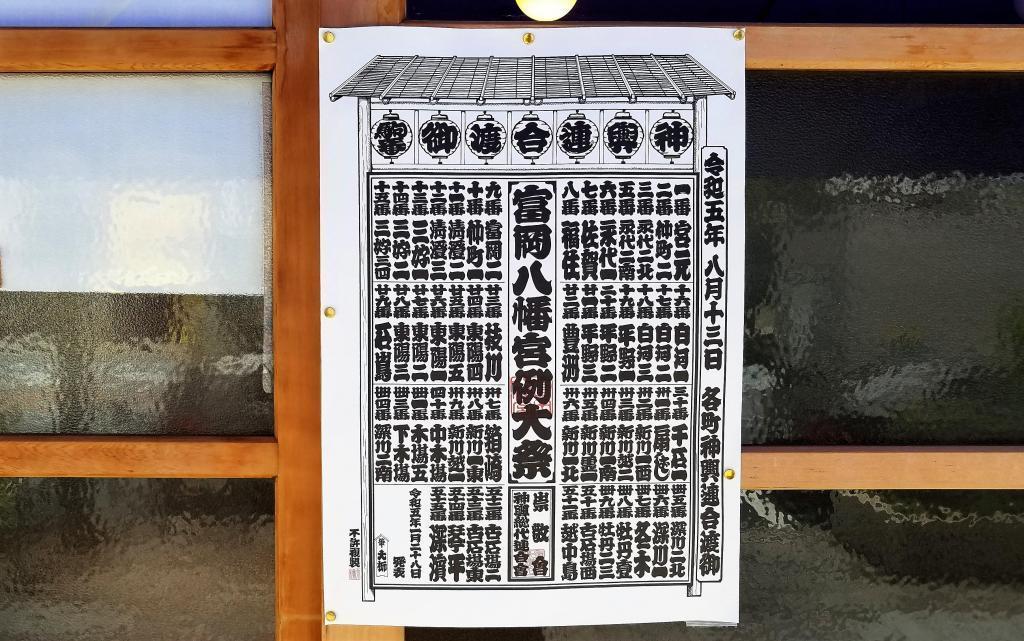 神輿連合渡御
令和五年 八月十三日 各町神輿連合渡御
一番 宮元
二番 仲町二
三番 永代二北
五番 永代二南
六番 永代一
七番 佐賀
八番 福住
富岡八幡宮例大祭
九番 富岡二
十番 仲町一
十一番 清澄二
十二番 清澄三
十三番 三好一
十四番 三好二
十五番 三好三四
十六番 白河一
十七番 白河二
十八番 白河三
十九番 平野一
二十番 平野二
平野三
廿二番 豊洲
廿三番 枝川
廿四番 東陽四
廿五番 東陽五
廿六番 東陽一
廿七番 東陽二
廿八番 東陽三
廿九番 石島
三十番 千石
卅一番
卅二番 新川一西
卅三番 新川越一
卅四番 新川一南
卅五番 新川
卅六番 新川一北
卅七番 箱崎
卅八番 新川一東
卅九番 新川越二
四十番 中木場
木場五
卌三番 下木場
卌四番 深川二南
卌五番 深川二北
卌六番 深川一
卌七番 冬木
卌八番 牡丹壹
卌九番 牡丹二三
五十番 古石場西
五十一番 越中島
崇敬會
神輿総代連合會
五十二番 古石場二
五十三番 古石場東
五十四番 琴平
五十五番 深濱
令和五年一月二十八日 発表
不許複製